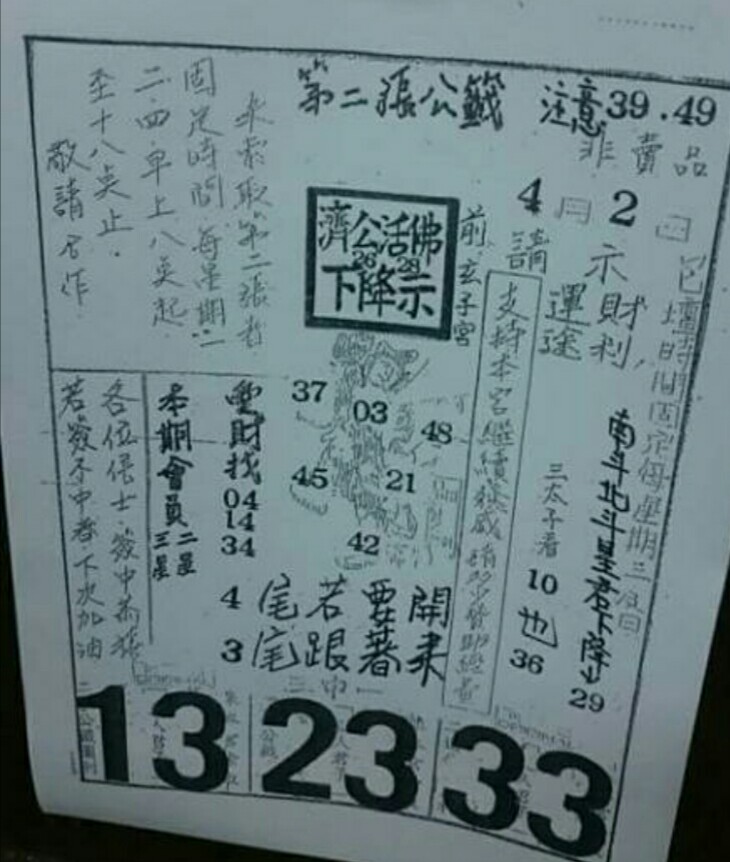 第二張公籤
注意39.49
非賣品
4月2日
請示財利,
運途
南斗北斗星君下降
29
三太子看
10
也
36
支持本宮繼續發威請多多贊助經費
前玄子宮
濟公活佛
26 28
下降示
來索取第二張者
固定時間每星期
二.四早上八奌起
至十八奌止.
敬請合作
37
03
48
45
21
42
雙財找
04
14
34
4尾若要開
3尾跟著來
本期會員
二星
三星
各位信士.簽中恭禧
若簽不中者.下次加油
三中一
13 23 33